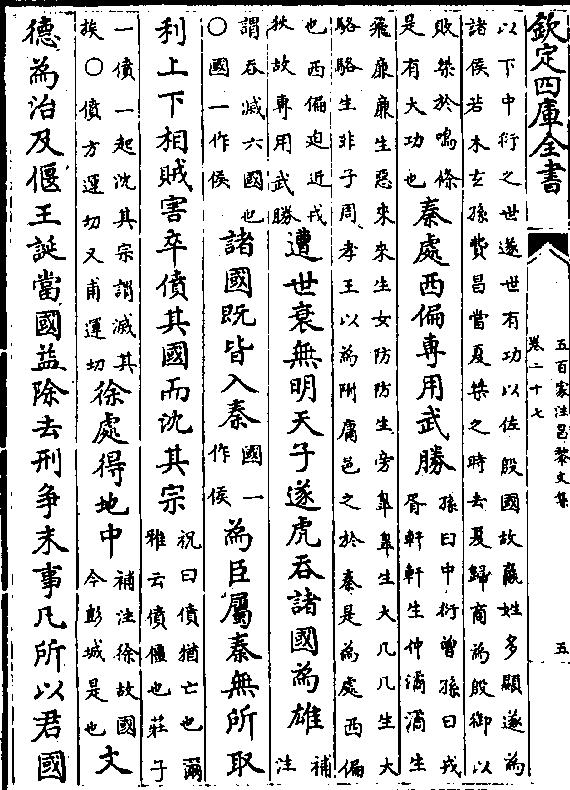 欽定四庫全書
五百家注昌黎文集
卷二十七
五
以下中衍之世遂世有功以佐殷國故嬴姓多顯遂為
諸侯若木玄孫費昌當夏桀之時去夏歸商為殷御以
敗桀於鳴條
是有大功也
秦處西偏專用武勝
孫曰中衍曾孫曰戎
胥軒軒生仲潏潏生
飛廉廉生惡來來生女防防生旁臯臯生大几几生大
駱駱生非子周孝王以為附庸邑之於秦是為處西偏
也西偏迫近戎
狄故專用武勝
遭世衰無明天子遂虎吞諸國為雄
補
注
謂吞滅六國也
○國一作侯
諸國既皆入秦
國一
作侯
為臣屬秦無所取
利上下相賊害卒僨其國而沈其宗
祝曰僨猶亡也爾
雅云僨僵也莊子
一僨一起沈其宗謂滅其
族○僨方運切又甫運切
徐處得地中
補注徐故國
今彭城是也
文
德為治及偃王誕當國益除去刑爭末事凡所以君國